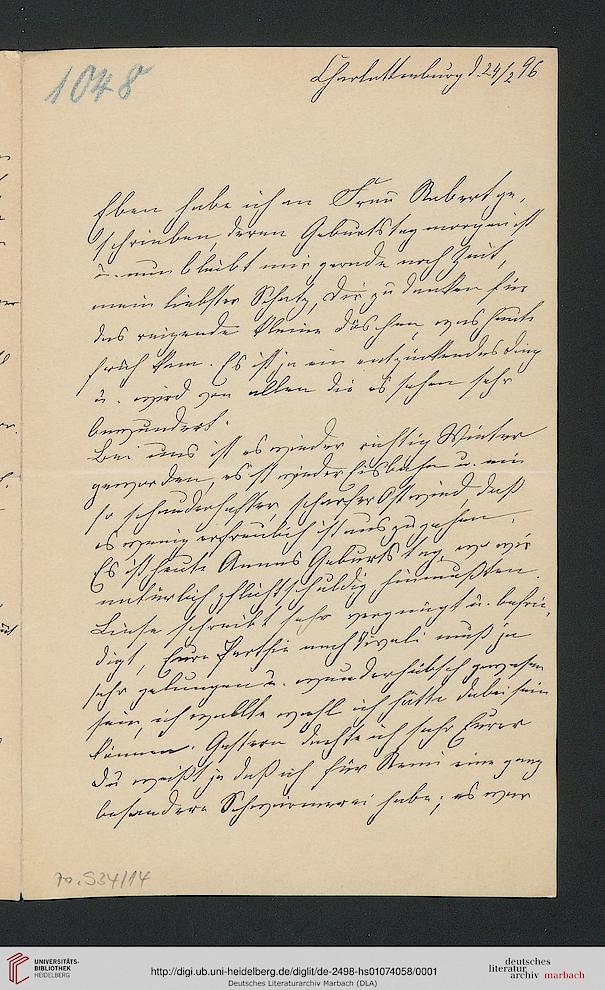 1048
Charlottenburg d 24/2 96
Eben habe ich an Frau Robert ge,
schrieben, deren Geburtstag morgen ist
u. nun bleibt mir gerade noch Zeit,
mein liebster Schatz, Dir zu danken für
das reizende kleine Döschen, was heute
früh kam. Es ist ja ein entzückendes Ding
u. wird von allen die es sehen sehr
bewundert.
Bei uns ist es wieder richtig Winter
geworden, es ist wieder Eisbahn u. ein
so schauderhafter, scharfer Ostwind, daß
es wenig erfreulich ist auszugehen.
Es ist heute Annas Geburtstag, wo wir
natürlich pflichtschuldig hinmußten.
Liese schreibt sehr vergnügt u. befrie,
digt, Eure Parthie nach Tivoli muß ja
sehr gelungen u. wunderhübsch gewesen
sein, ich wollte wohl ich hätte dabei sein
können. Gestern dachte ich sehr Eurer
Du weißt ja daß ich für Nemi eine ganz
besondere Schwärmerei habe; es war
70.534/14
UNIVERSITÄTS-
BIBLIOTHEK
HEIDELBERG
http://digi.ub.uni-heidelberg.de/diglit/de-2498-hs01074058/0001
Deutsches Literaturarchiv Marbach (DLA)
deutsches
literatur
archiv marbach